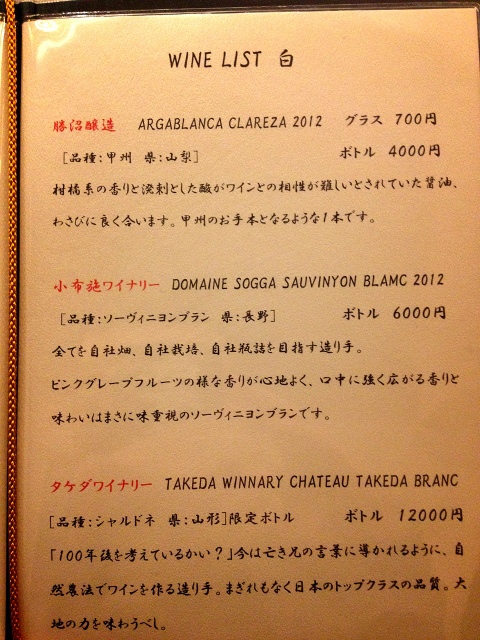 WINE LIST 白
勝沼醸造 ARGABLANCA CLAREZA 2012 グラス 700円
[品種:甲州 県:山梨] ボトル 4000円
柑橘系の香りと溌剌とした酸がワインとの相性が難しいとされていた醤油、
わさびに良く合います。甲州のお手本となるような1本です。
小布施ワイナリー DOMAINE SOGGA SAUVINYON BLAMC 2012
[品種:ソーヴィニヨンブラン 県:長野] ボトル 6000円
全てを自社畑、自社栽培、自社瓶詰を目指す造り手。
ピンクグレープフルーツの様な香りが心地よく、口中に強く広がる香りと
味わいはまさに味重視のソーヴィニヨンブランです。
タケダワイナリー TAKEDA WINNARY CHATEAU TAKEDA BRANC
[品種:シャルドネ 県:山形]限定ボトル ボトル 12000円
「100年後を考えているかい?」今は亡き兄の言葉に導かれるように、自
然農法でワインを作る造り手。まぎれもなく日本のトップクラスの品質。大
地の力を味わうべし。